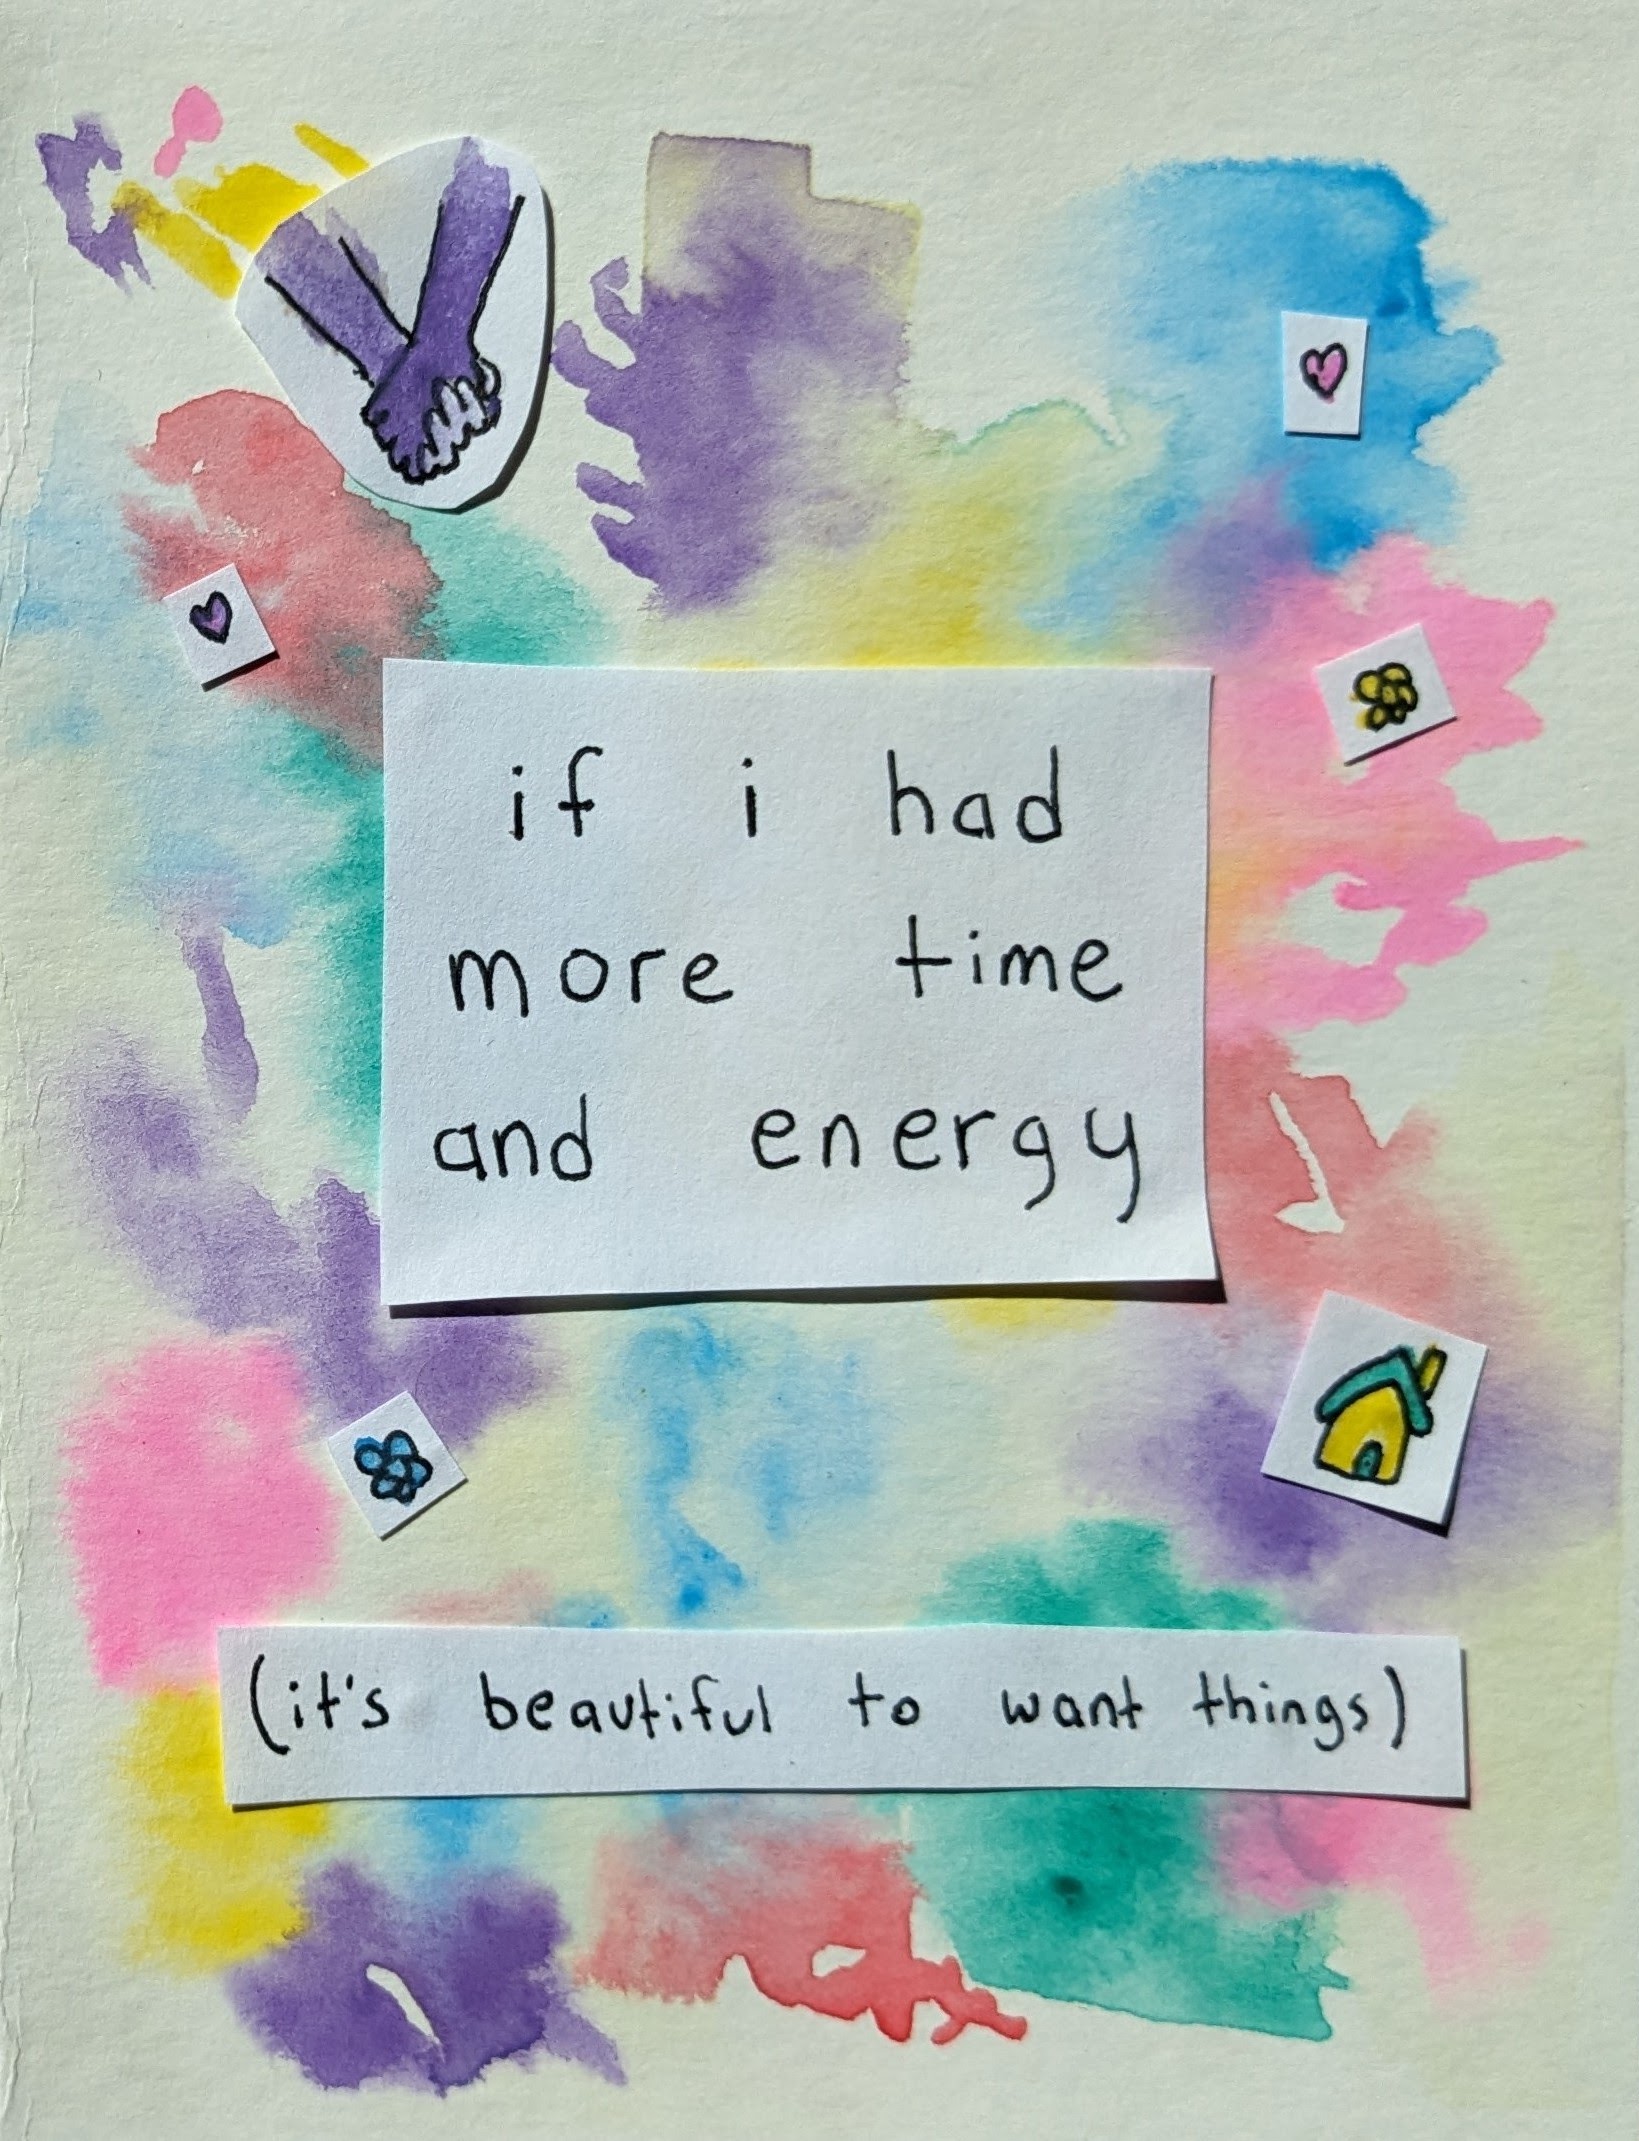 if i had
more time
and energy
(it's beautiful to want things)